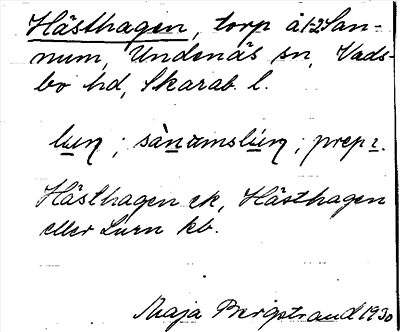 Hästhagen, torp å 1-2 San-
num, Undenäs sn, Vads-
bo hd, Skarab. l.
luņ; sànamslúņ; prep i.
Hästhagen ek, Hästhagen
eller Lurn kb.
Maja Bergstrand 1930